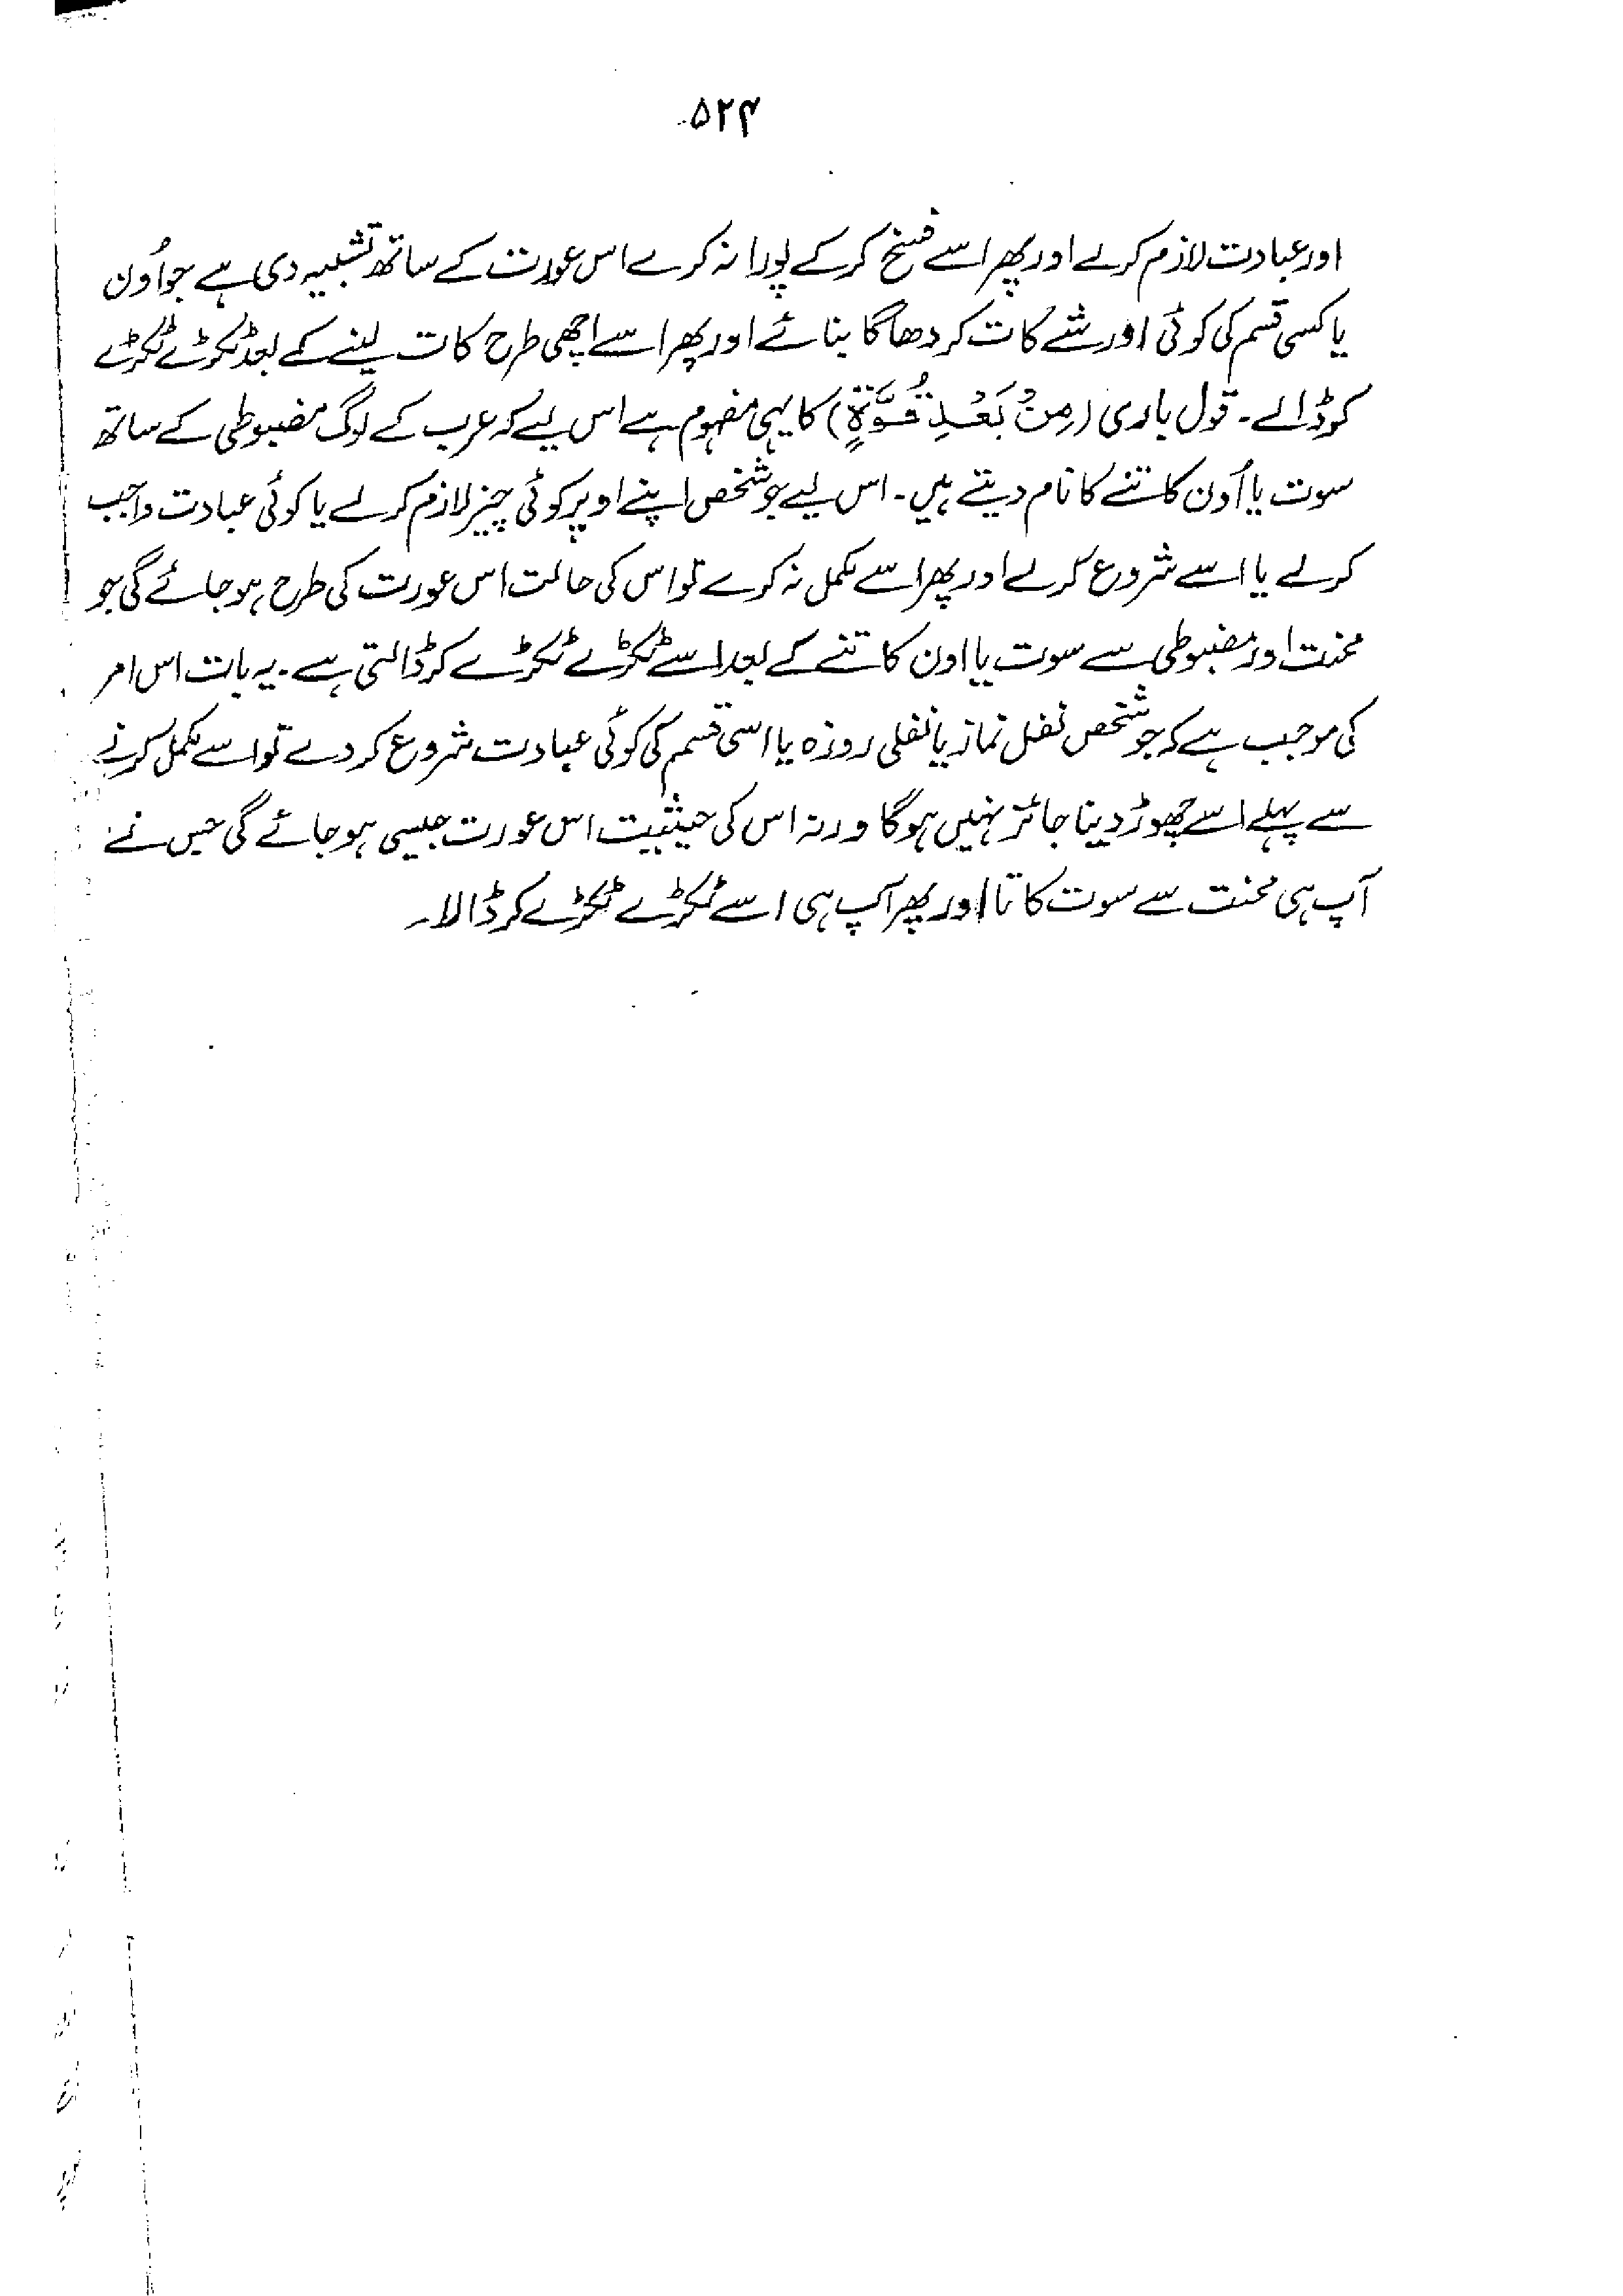 ۵۲۴
اور عبادت لازم کرلے اور پھر اسے فسخ کرکے پورا نہ کرے اس عورت کے ساتھ تشبیہ دی ہے جو اُون
یا کسی قسم کی کوئی اور شے کات کر دھاگا بنائے اور پھر اسے اچھی طرح کات لینے کے بعد ٹکڑے ٹکڑے
کر ڈالے۔ قول باری (مِنْ بَعْدِ قُوَّةٍ) کا یہی مفہوم ہے اس لیے کہ عرب کے لوگ مضبوطی کے ساتھ
سوت یا اُون کاتنے کا نام دیتے ہیں۔ اس لیے جو شخص اپنے اوپر کوئی چیز لازم کرلے یا کوئی عبادت واجب
کرلے یا اسے شروع کرلے اور پھر اسے مکمل نہ کرے تو اس کی حالت اس عورت کی طرح ہو جائے گی جو
محنت اور مضبوطی سے سوت یا اون کاتنے کے بعد اسے ٹکڑے ٹکڑے کر ڈالتی ہے۔ یہ بات اس امر
کی موجب ہے کہ جو شخص نفل نماز یا نفلی روزہ یا اسی قسم کی کوئی عبادت شروع کردے تو اسے مکمل کرنے
سے پہلے اسے چھوڑ دینا جائز نہیں ہوگا ورنہ اس کی حیثیت اس عورت جیسی ہو جائے گی جس نے
آپ ہی محنت سے سوت کاتا اور پھر آپ ہی اسے ٹکڑے ٹکڑے کر ڈالا۔